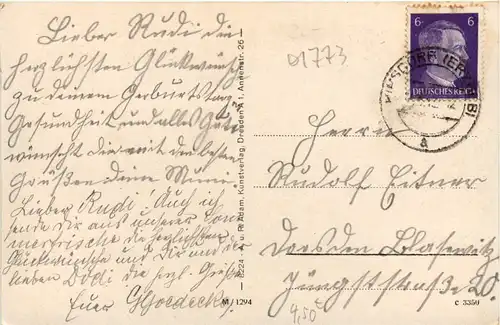 Lieber Rudi die
herzlichsten Glückwünsche
zu deinem Geburtstag
Gesundheit und alles Gute
wünscht dir mit den besten
Grüßen deine Mimi.
Lieber Rudi! Auch ich
sende dir aus unserer Som
merfrische die herzlichsten
Glückwünsche und Dir und der
lieben Dodi die herzl. Grüße
Euer
8224 - A. u. R. Adam, Kunstverlag, Dresden-A 1, Annenstr. 25
M 1294
01773
6 6
DEUTSCHES REICH
a
Herrn
Rudolf Eitner
Dresden Blasewitz
Jüngststraße 20
4,50€
C 3350